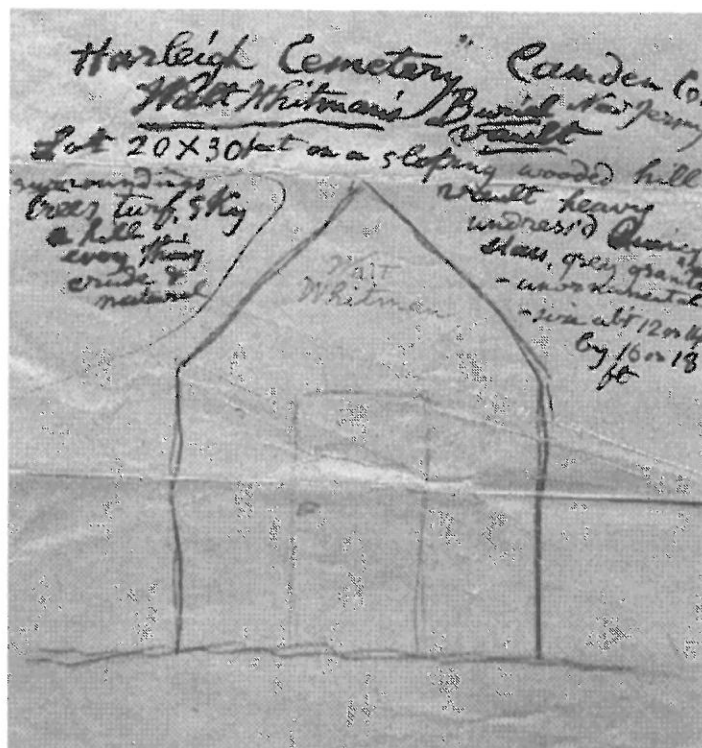 "Harleigh Cemetery" Camden Co.
Walt Whitman's Burial New Jersey
Vault
Lot 20X30 feet on a sloping wooded hill
surroundings
trees turf, sky
a hill
every thing
crude &
natural
vault heavy
undress'd Quincy
Mass, grey granite
- unornamental
- size abt 12 or 14
by 16 or 18
ft
Walt
Whitman